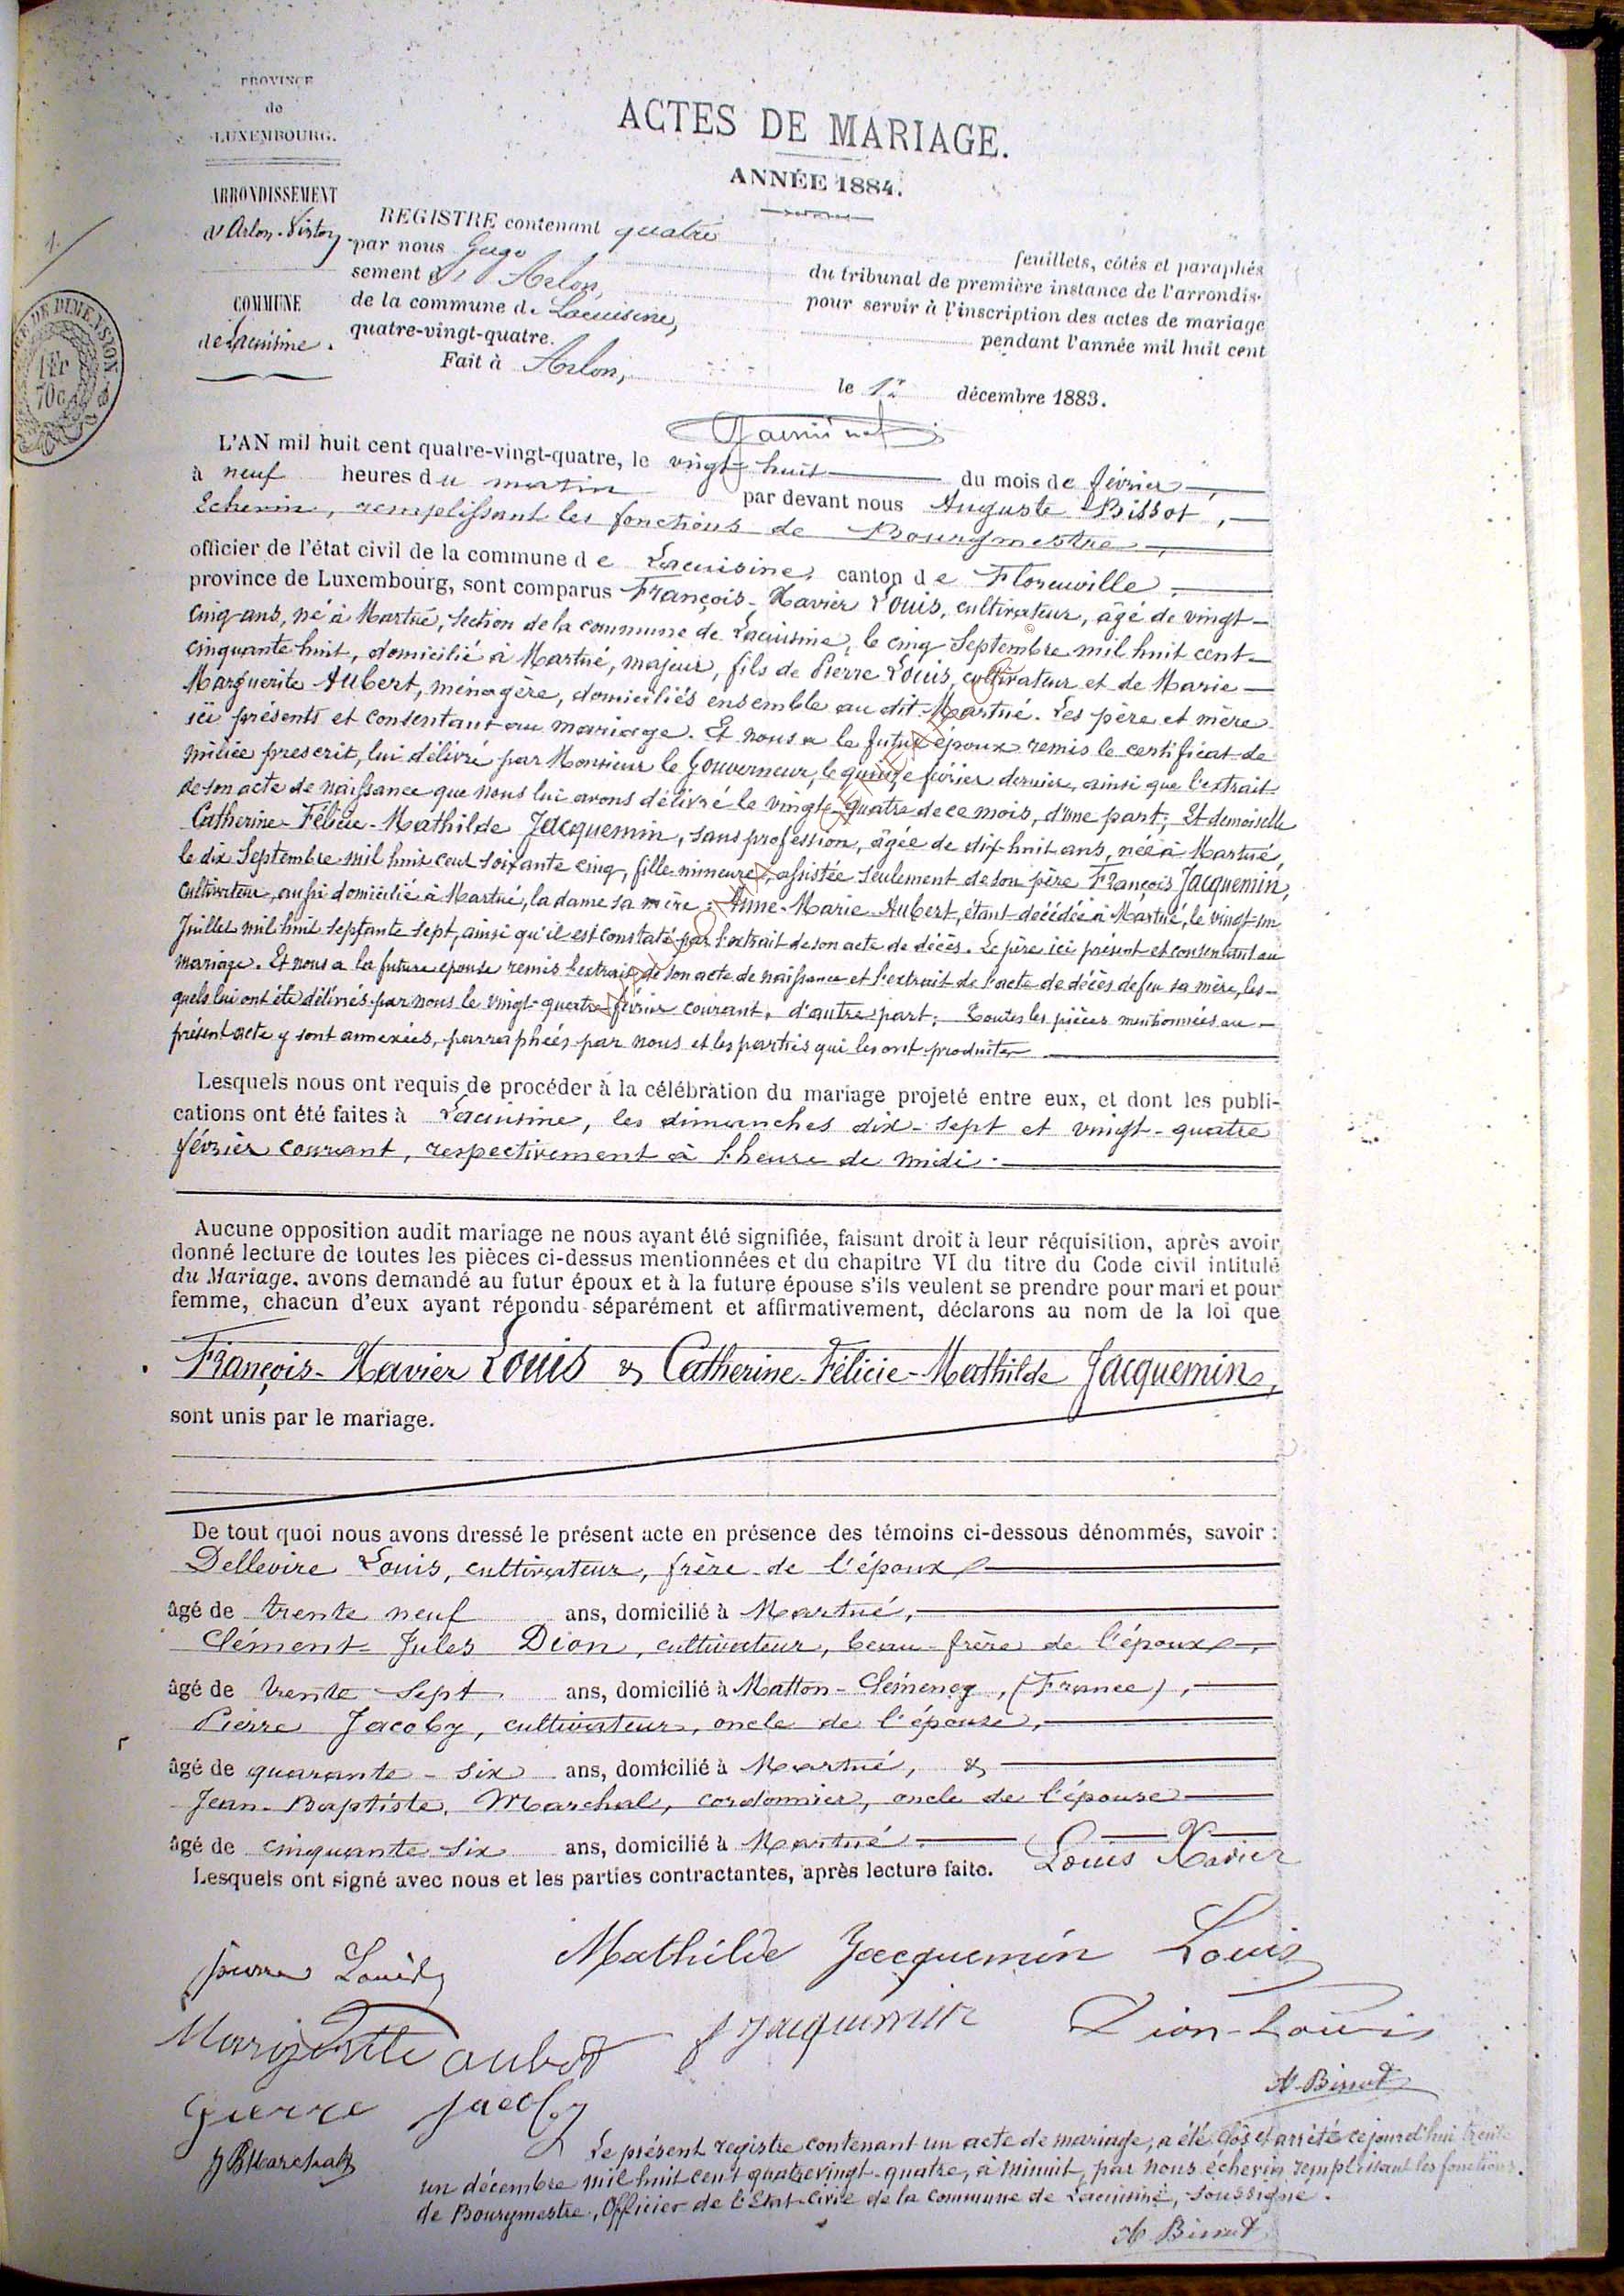 PROVINCE
de
LUXEMBOURG.
ACTES DE MARIAGE.
ANNÉE 1884.
ARRONDISSEMENT
d'Arlon-Virton
COMMUNE
de Lacuisine.
1.
DE DIMENSION
1 Fr
70c
REGISTRE contenant quatre feuillets, côtés et paraphés
par nous Juge du tribunal de première instance de l'arrondis-
sement d' Arlon, pour servir à l'inscription des actes de mariage
de la commune de Lacuisine, pendant l'année mil huit cent
quatre-vingt-quatre.
Fait à Arlon, le 1r décembre 1883.
L'AN mil huit cent quatre-vingt-quatre, le vingt-huit du mois de février,
à neuf heures du matin par devant nous Auguste Bissot,
Echevin, remplissant les fonctions de Bourgmestre,
officier de l'état civil de la commune de Lacuisine, canton de Florenville,
province de Luxembourg, sont comparus François-Xavier Louis, cultivateur, âgé de vingt-
cinq ans, né à Martué, section de la commune de Lacuisine, le cinq Septembre mil huit cent-
cinquante huit, domicilié à Martué, majeur, fils de Pierre Louis, cultivateur et de Marie-
Marguerite Aubert, ménagère, domiciliés ensemble au dit Martué. Les père et mère
ici présents et consentant au mariage. Et nous a le futur époux remis le certificat de
milice prescrit, lui délivré par Monsieur le Gouverneur, le quinze février dernier, ainsi que l'extrait
de son acte de naissance que nous lui avons délivré le vingt-quatre de ce mois, d'une part; Et demoiselle
Catherine-Félicie-Mathilde Jacquemin, sans profession, âgée de dix-huit ans, née à Martué,
le dix Septembre mil huit cent soixante cinq, fille mineure, assistée seulement de son père François Jacquemin,
cultivateur, aussi domicilié à Martué, la dame sa mère: Anne-Marie Aubert, étant décédée à Martué, le vingt-un
Juillet mil huit septante sept, ainsi qu'il est constaté par l'extrait de son acte de décès. Le père ici présent et consentant au
mariage. Et nous a la future épouse remis l'extrait de son acte de naissance et l'extrait de l'acte de décès de feu sa mère, les-
quels lui ont été délivrés par nous le vingt-quatre février courant, d'autre part; Toutes les pièces mentionnées au
présent acte y sont annexées, parraphées par nous et les parties qui les ont produites
Lesquels nous ont requis de procéder à la célébration du mariage projeté entre eux, et dont les publi-
cations ont été faites à Lacuisine, les dimanches dix-sept et vingt-quatre
février courant, respectivement à l'heure de midi.
Aucune opposition audit mariage ne nous ayant été signifiée, faisant droit à leur réquisition, après avoir
donné lecture de toutes les pièces ci-dessus mentionnées et du chapitre VI du titre du Code civil intitulé
du Mariage, avons demandé au futur époux et à la future épouse s'ils veulent se prendre pour mari et pour
femme, chacun d'eux ayant répondu séparément et affirmativement, déclarons au nom de la loi que
François-Xavier Louis & Catherine-Félicie-Mathilde Jacquemin,
sont unis par le mariage.
De tout quoi nous avons dressé le présent acte en présence des témoins ci-dessous dénommés, savoir :
Dellevire Louis, cultivateur, frère de l'époux
âgé de trente neuf ans, domicilié à Martué,
Clément-Jules Dion, cultivateur, beau-frère de l'époux,
âgé de trente sept ans, domicilié à Matton-Clémency, (France),
Pierre Jacoby, cultivateur, oncle de l'épouse,
âgé de quarante-six ans, domicilié à Martué, &
Jean-Baptiste, Marchal, cordonnier, oncle de l'épouse
âgé de cinquante six ans, domicilié à Martué.
Lesquels ont signé avec nous et les parties contractantes, après lecture faite.
Louis Xavier
pierre Louis Mathilde Jacquemin Louis
Margueritte aubert f Jacquemin Dion-Louis
A. Bissot
pierre jacoby
J B Marchal
Le présent registre contenant un acte de mariage, a été clôs et arrêté cejourd'hui trente
un décembre mil huit cent quatrevingt-quatre, à minuit, par nous échevin remplissant les fonctions
de Bourgmestre, Officier de l'Etat-Civil de la commune de Lacuisine, soussigné.
A. Bissot